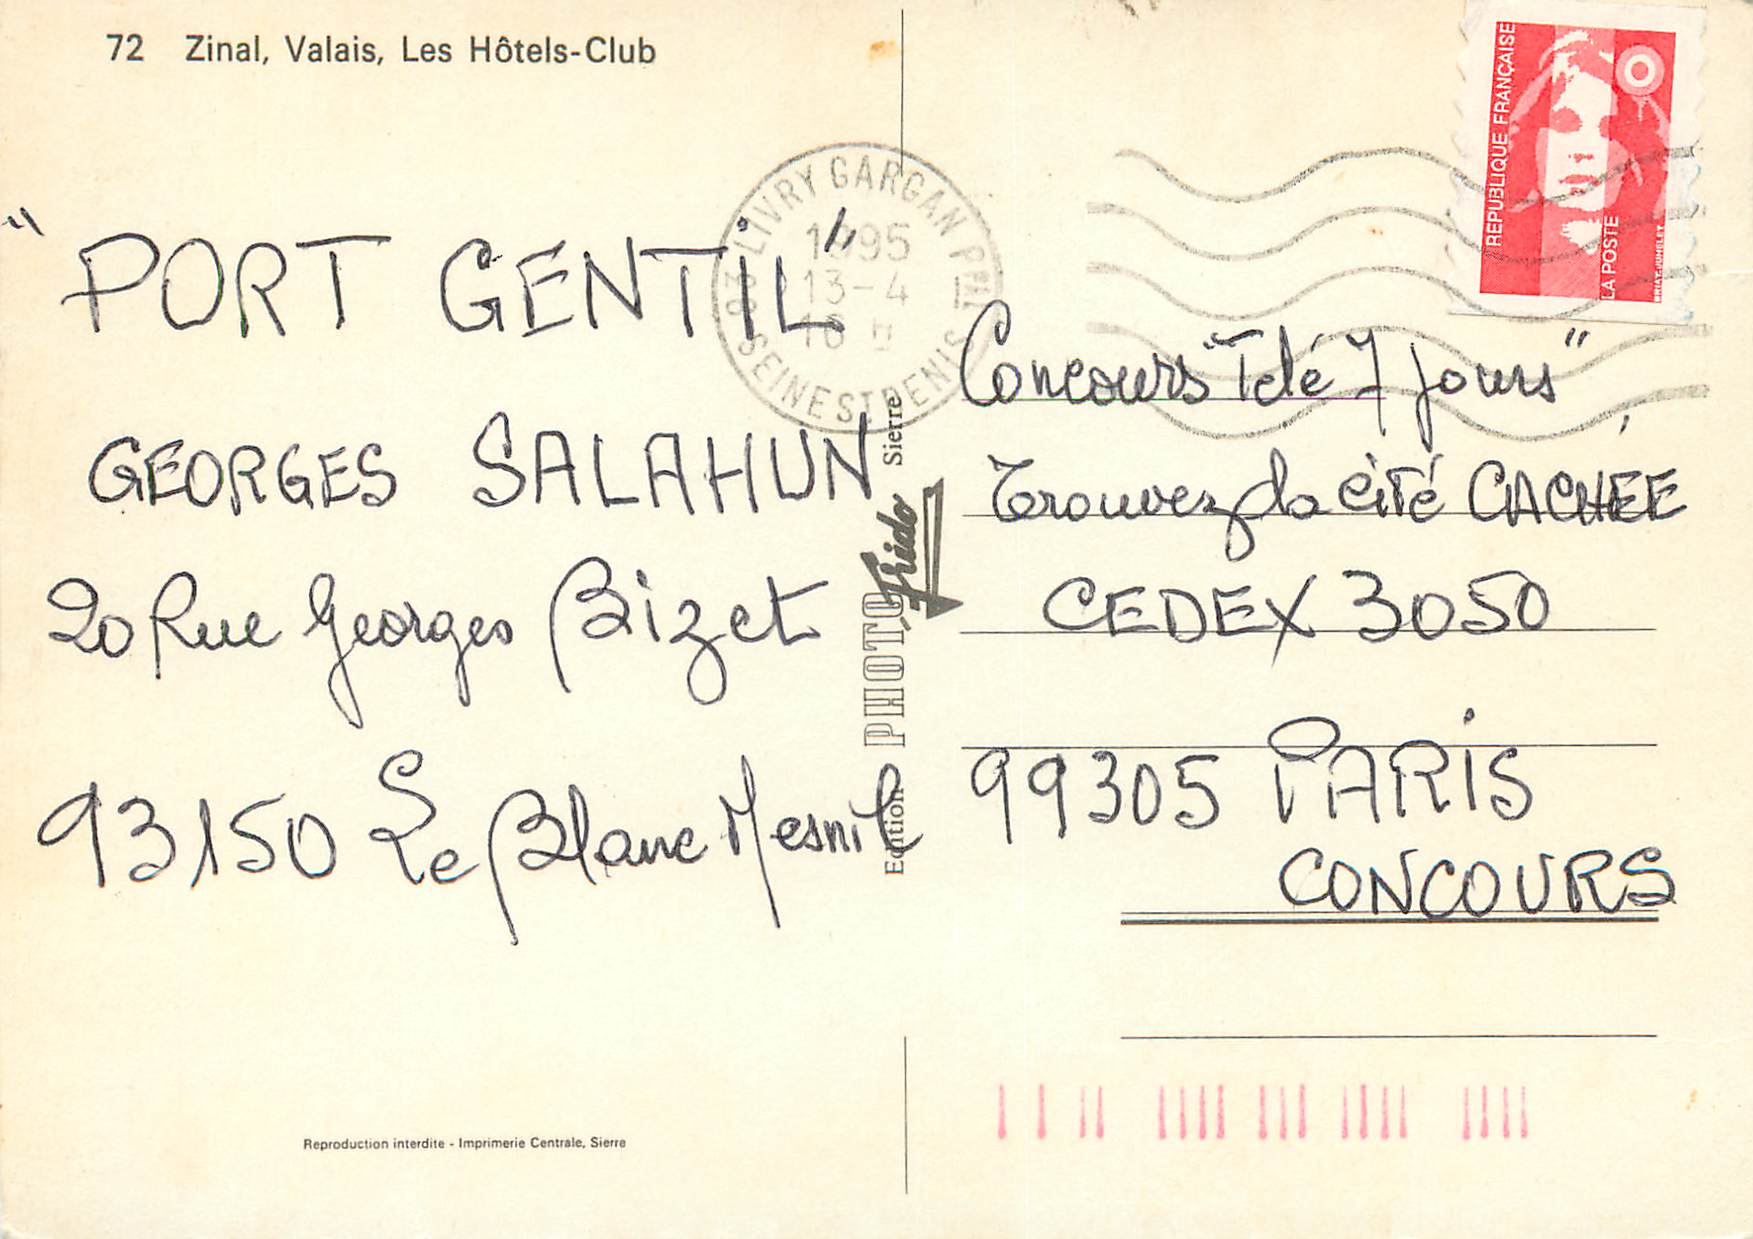 72 Zinal, Valais, Les Hôtels-Club
"PORT GENTIL"
GEORGES SALAHUN
20 Rue Georges Bizet
93150 Le Blanc Mesnil
Reproduction interdite - Imprimerie Centrale, Sierre
Edition PHOTO Frido Sierre
93 LIVRY GARGAN PPAL
1995
13-4
SEINE ST DENIS
REPUBLIQUE FRANÇAISE
LA POSTE
BRIAT-JUMELET
Concours "Télé 7 jours"
Trouvez la cité CACHÉE
CEDEX 3050
99305 PARIS
CONCOURS